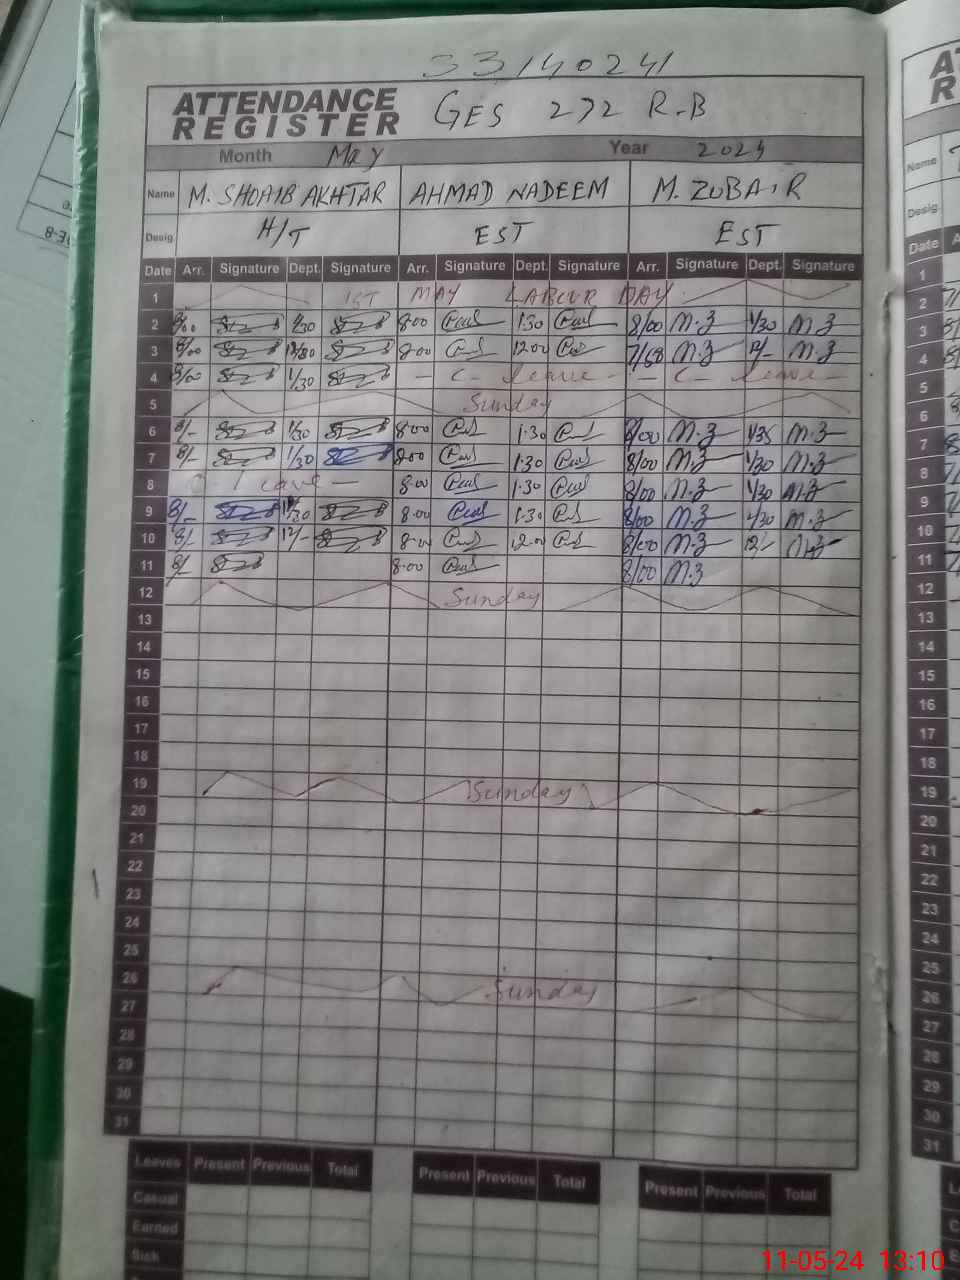 33140241
ATTENDANCE REGISTER GES 272 R.B
Month May Year 2024
Name M. SHOAIB AKHTAR AHMAD NADEEM M. ZUBAIR
Desig. H/T EST EST
Date Arr. Signature Dept. Signature Arr. Signature Dept. Signature Arr. Signature Dept. Signature
1 1ST MAY LABOUR DAY
2 8/00 1/30 8.00 1.30 8/00 M.Z 1/30 M.Z
3 8/00 8.00 12.00 7/58 M.Z 12/- M.Z
4 8/00 1/30 - C - leave - - C - leave -
5 Sunday
6 8/- 1/30 8.00 1.30 8/00 M.Z 1/35 M.Z
7 8/- 1/30 8.00 1.30 8/00 M.Z 1/30 M.Z
8 leave - 8.00 1.30 8/00 M.Z 1/30 M.Z
9 8/- 8.00 1.30 8/00 M.Z 1/30 M.Z
10 8/- 12/- 8.00 12.00 8/00 M.Z 12/- M.Z
11 8/- 8.00 8/00 M.Z
12 Sunday
13
14
15
16
17
18
19 Sunday
20
21
22
23
24
25
26 Sunday
27
28
29
30
31
Leaves Present Previous Total Present Previous Total Present Previous Total
Casual
Earned
Sick
Name
Desig.
Date
1
2
3
4
5
6
7
8
9
10
11
12
13
14
15
16
17
18
19
20
21
22
23
24
25
26
27
28
29
30
31
11-05-24 13:10